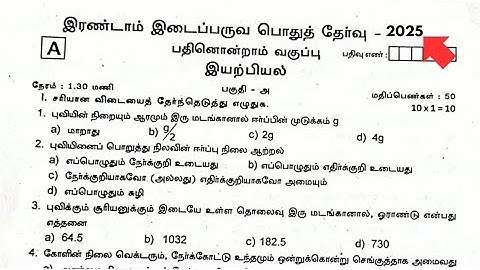 இரண்டாம் இடைப்பருவ பொதுத் தேர்வு - 2025
A
பதினொன்றாம் வகுப்பு
பதிவு எண் :
இயற்பியல்
நேரம் : 1.30 மணி
மதிப்பெண்கள் : 50
பகுதி - அ
I. சரியான விடையைத் தேர்ந்தெடுத்து எழுதுக.
10 x 1 = 10
1. புவியின் நிறையும் ஆரமும் இரு மடங்கானால் ஈர்ப்பின் முடுக்கம் g
a) மாறாது b) g/2 c) 2g d) 4g
2. புவியினைப் பொறுத்து நிலவின் ஈர்ப்பு நிலை ஆற்றல்
a) எப்பொழுதும் நேர்க்குறி உடையது b) எப்பொழுதும் எதிர்க்குறி உடையது
c) நேர்க்குறியாகவோ (அல்லது) எதிர்க்குறியாகவோ அமையும்
d) எப்பொழுதும் சுழி
3. புவிக்கும் சூரியனுக்கும் இடையே உள்ள தொலைவு இரு மடங்கானால், ஓராண்டு என்பது
எத்தனை
a) 64.5 b) 1032 c) 182.5 d) 730
4. கோளின் நிலை வெக்டரும், நேர்க்கோட்டு உந்தமும் ஒன்றுக்கொன்று செங்குத்தாக அமைவது